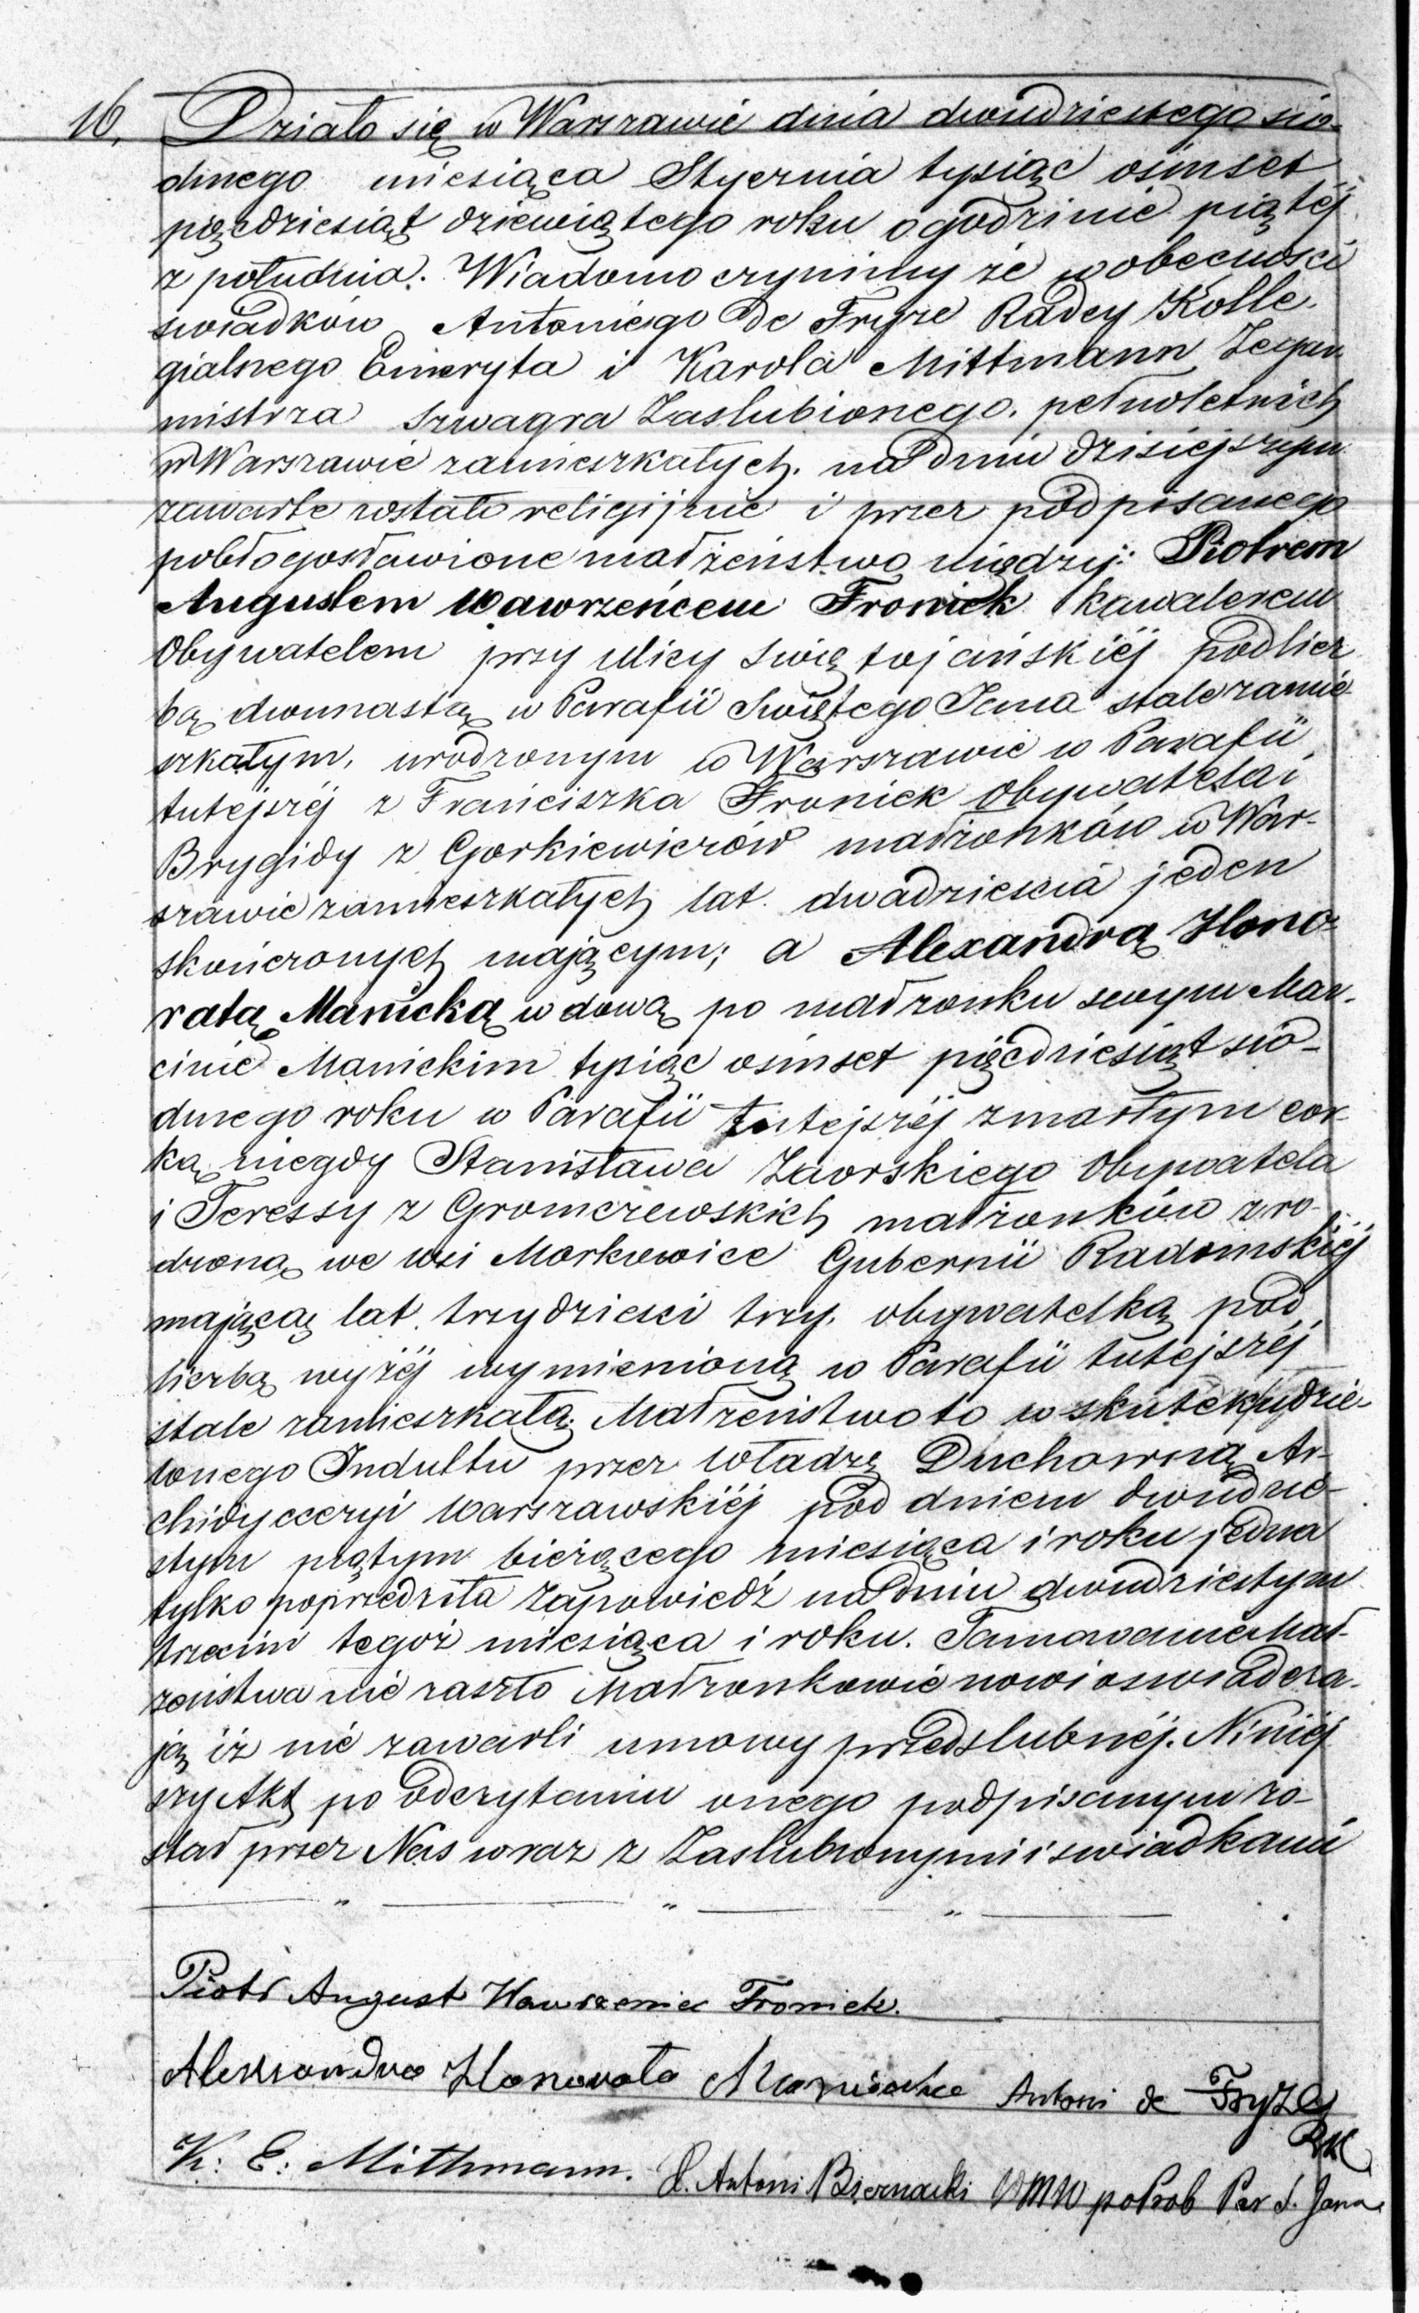 16. Działo się w Warszawie dnia dwudziestego sió-
dmego miesiąca Stycznia tysiąc ośmset
pięćdziesiąt dziewiątego roku o godzinie piątéj
z południa. Wiadomo czynimy że w obecności
świadków Antoniego de Fryze Radcy Kolle-
gialnego Emeryta i Karola Mittmann Zegar-
mistrza szwagra Zaslubionego. pełnoletnich
w Warszawie zamieszkałych. na dniu dzisiejszym
zawarte zostało religijnie i przez podpisanego
pobłogosławione małżeństwo między: Piotrem
Augustem Wawrzeńcem Fronick kawalerem
Obywatelem przy ulicy Swiętojańskiéj pod licz-
bą dwunastą w Parafii Swiętego Jana stale zamie-
szkałym, urodzonym w Warszawie w Parafii
tutejszéj z Franciszka Fronick Obywatela i
Brygidy z Gorkiewiczów małżonków w War-
szawie zamieszkałych lat dwadzieścia jeden
skończonych mającym; a Alexandrą Hono-
ratą Manicką wdową po małżonku swym Mar-
cinie Manickim tysiąc ośmset pięćdziesiąt sió-
dmego roku w Parafii tutejszéj zmarłym cór-
ką niegdy Stanisława Zaorskiego Obywatela
i Teressy z Gromczewskich małżonków zro-
dzoną we wsi Morkowice Gubernii Radomskiéj
mającą lat trzydzieści trzy. obywatelką pod
liczbą wyżéj wymienioną w Parafii tutejszéj
stale zamieszkałą. Małżeństwo to w skutek udzie-
lonego Indultu przez Władzę Duchowną Ar-
chidyecezyi Warszawskiéj pod dniem dwudzie-
stym piątym bieżącego miesiąca i roku jedna
tylko poprzedziła zapowiedź na dniu dwudziestym
trzecim tegoż miesiąca i roku. Tamowanie Mał-
żeństwa nie zaszło Małżonkowie nowi oswiadcza-
ją iż nie zawarli umowy przedslubnéj. Niniéj-
szy Akt po odczytaniu onego podpisanym zo-
stał przez Nas wraz z Zaslubionymi i swiadkami
Piotr August Wawrzeniec Fronick.
Aleksandra Honorata Manicka Antoni de Fryze
RK
K: E: Mittmann. X. Antoni Biernacki WMW po Prob Par S. Jana